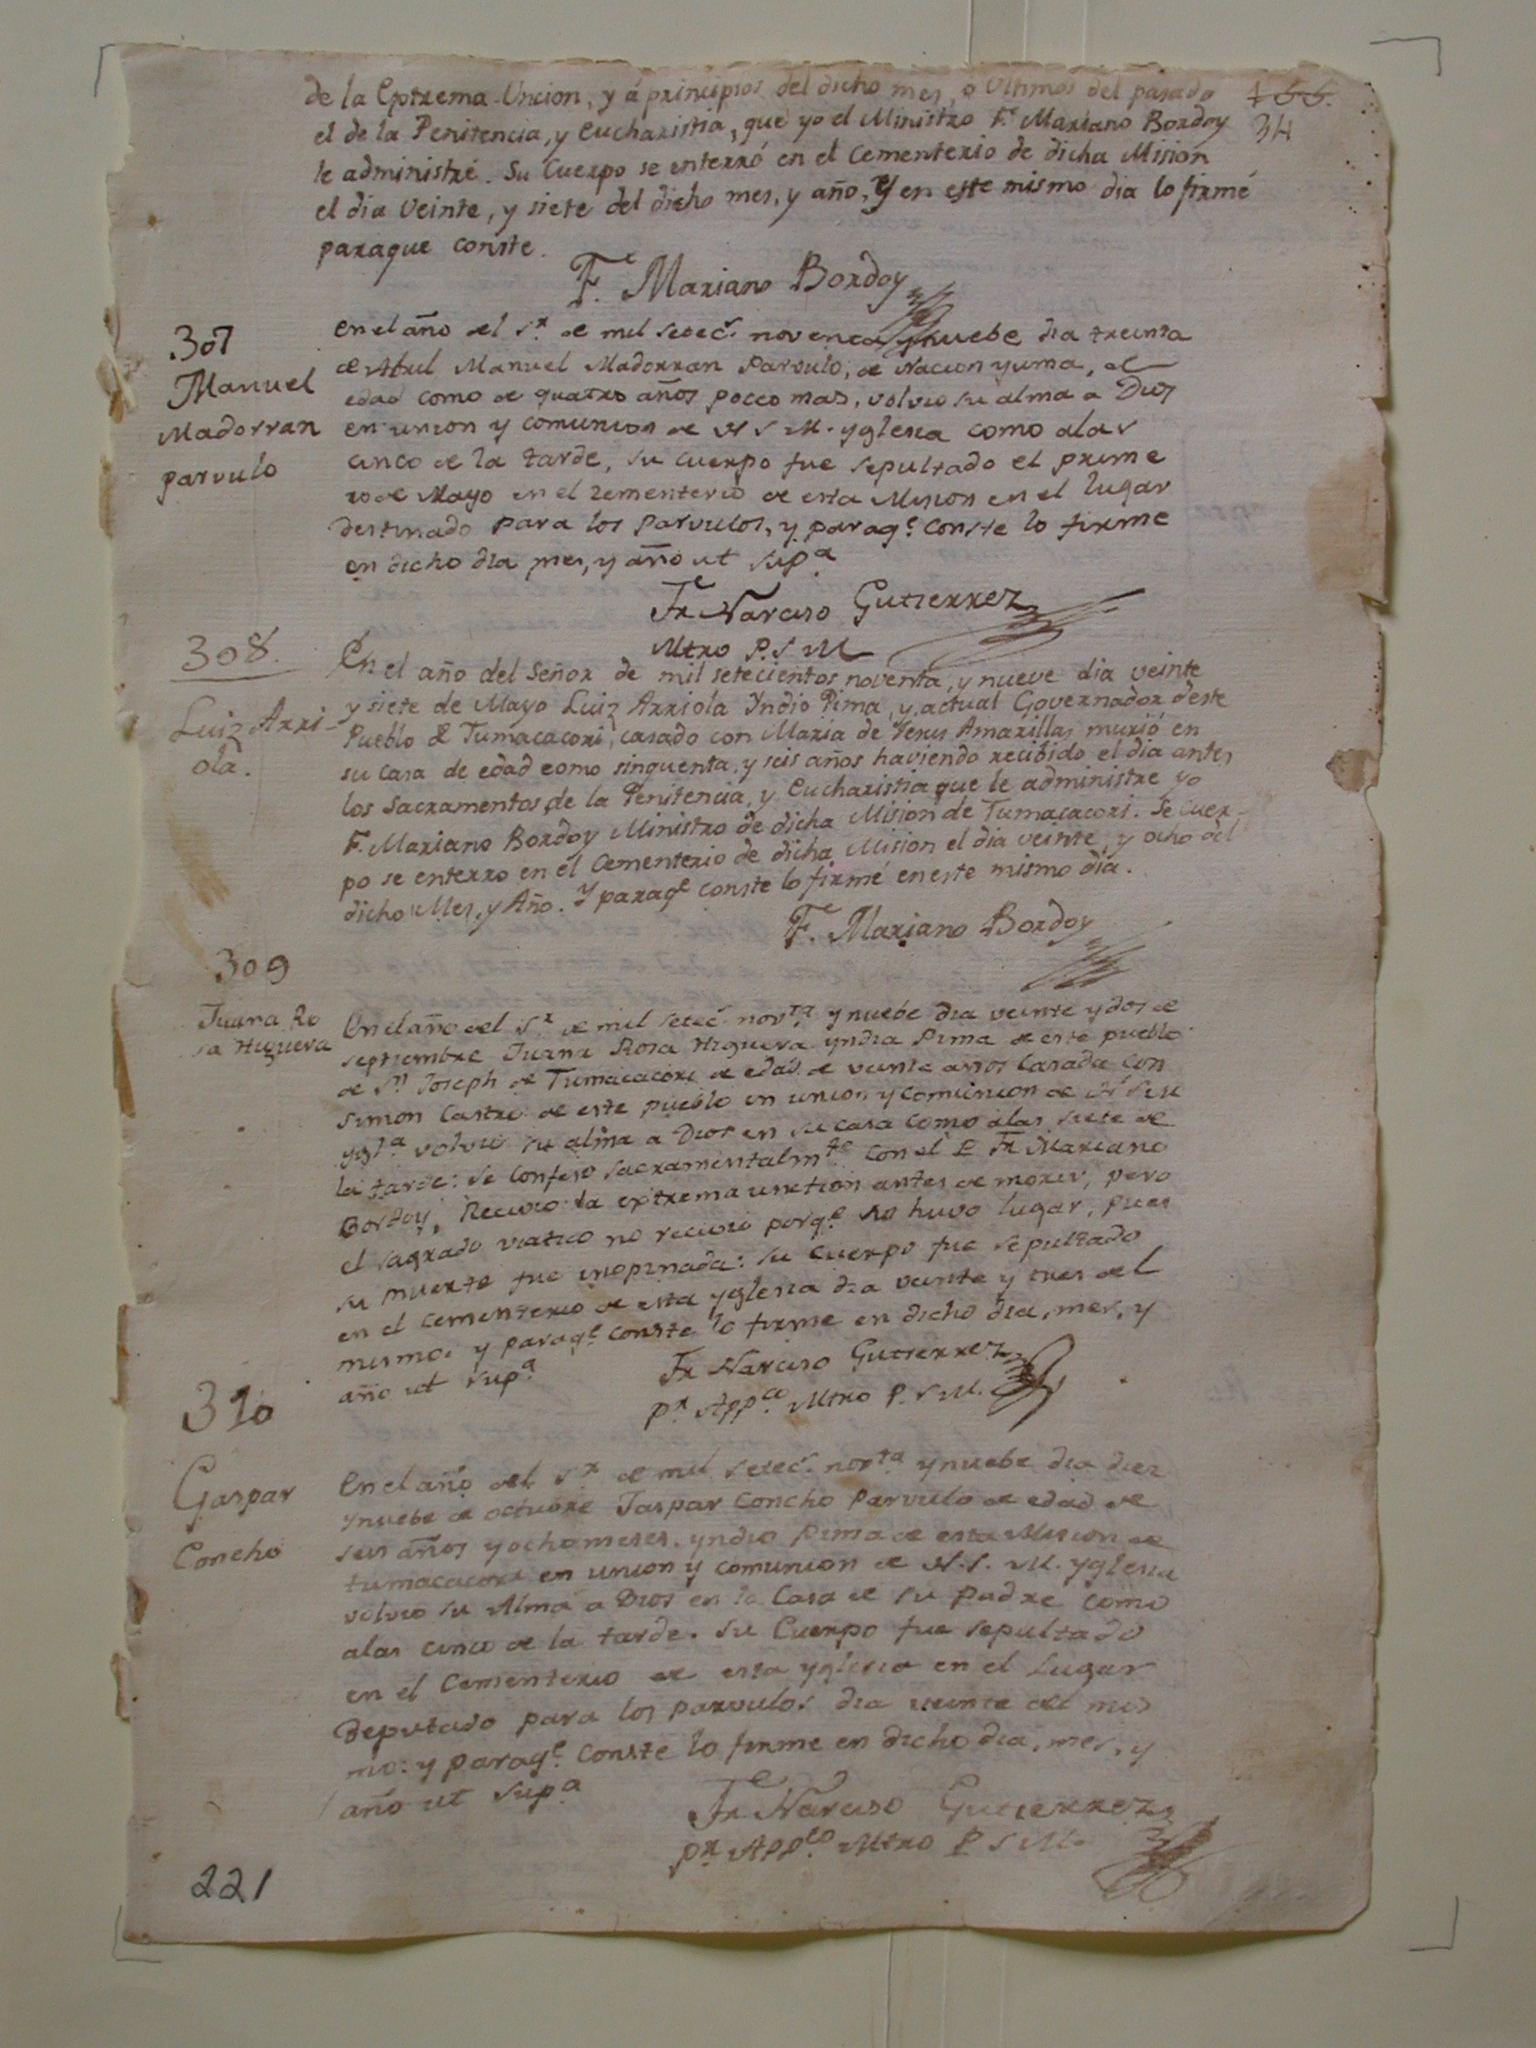 de la Extrema-Uncion, y á principios del dicho mes, ó Ultimos del pasado
166.
el de la Penitencia, y Eucharistia, que yo el Ministro Fr. Mariano Bordoy
34
le administré. Su Cuerpo se enterró en el Cementerio de dicha Mision
el dia Veinte, y siete del dicho mes, y año, Y en este mismo dia lo firmé
paraque conste.
Fr. Mariano Bordoy
307
Manuel
Madorran
parvulo
en el año del Sr. de mil setecs. noventa y nuebe dia treinta
de Abril Manuel Madorran Parvulo, de Nacion yuma, de
edad como de quatro años poceo mas, volvio su alma a Dios
en union y comunion de N S M. yglesia como alas
cinco de la tarde, su cuerpo fue sepultado el prime
ro de Mayo en el zementerio de esta Mision en el lugar
destinado para los parvulos, y paraqe. conste lo firme
en dicho dia mes, y año ut supa
Fr Narciso Gutierrez
Mtro P. S M
308.
Luiz Arri-
ola.
En el año del Señor de mil setecientos noventa, y nueve dia veinte
y siete de Mayo Luiz Arriola Yndio Pima, y actual Governador deste
Pueblo de Tumacacori, casado con Maria de Jesus Amarillas murió en
su casa de edad como sinquenta, y seis años haviendo recibido el dia antes
los Sacramentos de la Penitencia, y Eucharistia que le administre yo
F. Mariano Bordoy Ministro de dicha Mision de Tumacacori. Se Cuer-
po se enterro en el Cementerio de dicha Mision el dia veinte, y ocho del
dicho Mes, y Año. Y paraqe conste lo firmé en este mismo dia.
Fr. Mariano Bordoy
309
Juana Ro
sa Higuera
En el año del Sr de mil setecs. novta y nuebe dia veinte y dos de
septiembre Juana Rosa Higuera yndia Pima de este pueblo
de Sn Joseph de Tumacacori de edad de veinte años Casada con
Simon Castro de este pueblo en union y comunion de N S M
ygla volvio su alma a Dios en su casa como alas siete de
la tarde: se confeso sacramentalmte con el P. Fr Mariano
Bordoy, Recivio la extrema unction antes de morir, pero
el sagrado viatico no recivio porqe. no huvo lugar, pues
su muerte fue inopinada: su cuerpo fue sepultado
en el Cementerio de esta yglesia dia veinte y tres del
mismo: y paraqe. conste lo firme en dicho dia, mes, y
año ut supa
Fr Narciso Gutierrez
Pr. Appco. Mtro P. S M.
310
Gaspar
Concho
En el año del Sr de mil setecs. novta y nuebe dia diez
y nuebe de octubre Jaspar Concho Parvulo de edad de
seis años y ocho meses. yndio Pima de esta Mision de
tumacacori en union y comunion de N. S. M. yglesia
volvio su Alma a Dios en la Casa de su Padre como
alas cinco de la tarde. su Cuerpo fue sepultado
en el Cementerio de esta yglesia en el Lugar
Deputado para los parvulos dia veinte del mis
mo: y paraqe. conste lo firme en dicho dia, mes, y
año ut supa
Fr Narciso Gutierrez
Pr. Appco Mtro P S M.
221